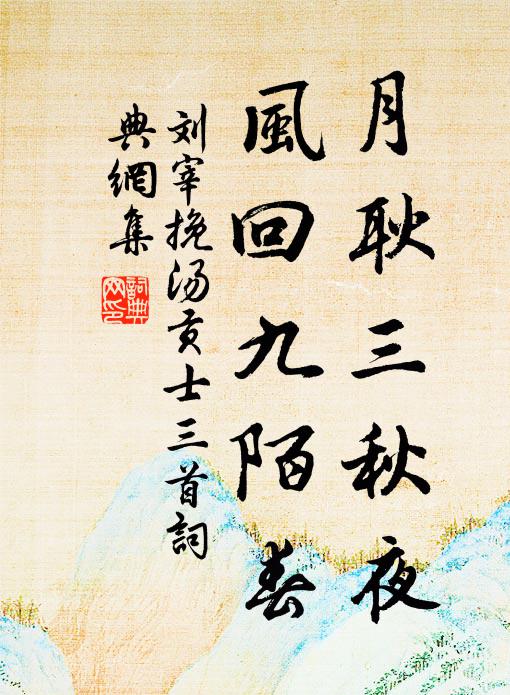 月耿三秋夜
風回九陌春
刘宰挽汤贡士三首詞
典網集
詞典网印